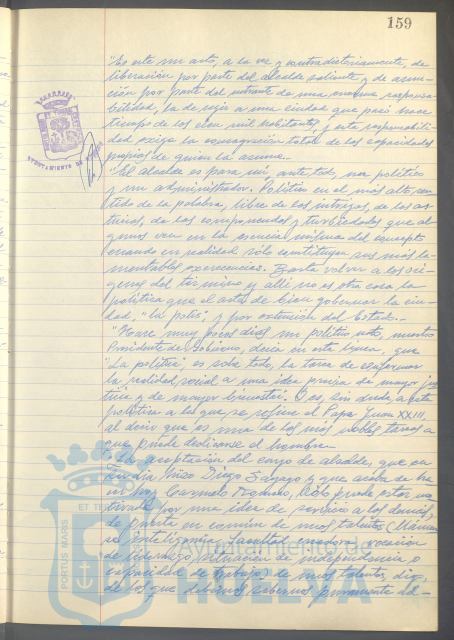 159
"Es este un acto, a la vez y contradictoriamente, de
liberación por parte del alcalde saliente, y de asun-
ción por parte del entrante de una enorme responsa-
bilidad, la de regir a una ciudad que pasó hace
tiempo de los cien mil habitantes, y esta responsabili-
dad exige la consagración total de las capacidades
propias de quien la asume.-
"El alcalde es para mí, ante todo, un político
y un administrador. Político en el más alto sen-
tido de la palabra, libre de las intrigas, de las as-
tucias, de las componendas y turbiedades que al-
gunos ven en la esencia misma del concepto
cuando en realidad sólo constituyen sus más la-
mentables excrecencias. Basta volver a los orí-
genes del término y allí no es otra cosa la
política que el arte de bien gobernar la ciu-
dad, "la polis", y por extensión del Estado.-
"Hace muy pocos días un político nato, nuestro
Presidente de Gobierno, decía en esta línea, que
"La política" es sobre todo, la tarea de
la realidad social a una idea precisa de mayor jus-
ticia y de mayor bienestar. Y es, sin duda, a esta
política a la que se refiere el Papa Juan XXIII,
al decir que es una de las más nobles tareas a
que puede dedicarse el hombre.-
La aceptación del cargo de alcalde, que en
su día hizo Diego Sayago y que acaba de ha-
cer hoy Carmelo Romero, sólo puede estar mo-
tivada por una idea de servicio a los demás,
de puesta en común de unos talentos (llámen-
se inteligencia, facultad creadora, vocación
de liderazgo, situación de independencia o
capacidad de trabajo), de unos talentos, digo,
de los que debemos sabernos puramente de-
AYUNTAMIENTO DE
PORTUS MARIS
ET TE
Ayuntamiento de
HUELVA